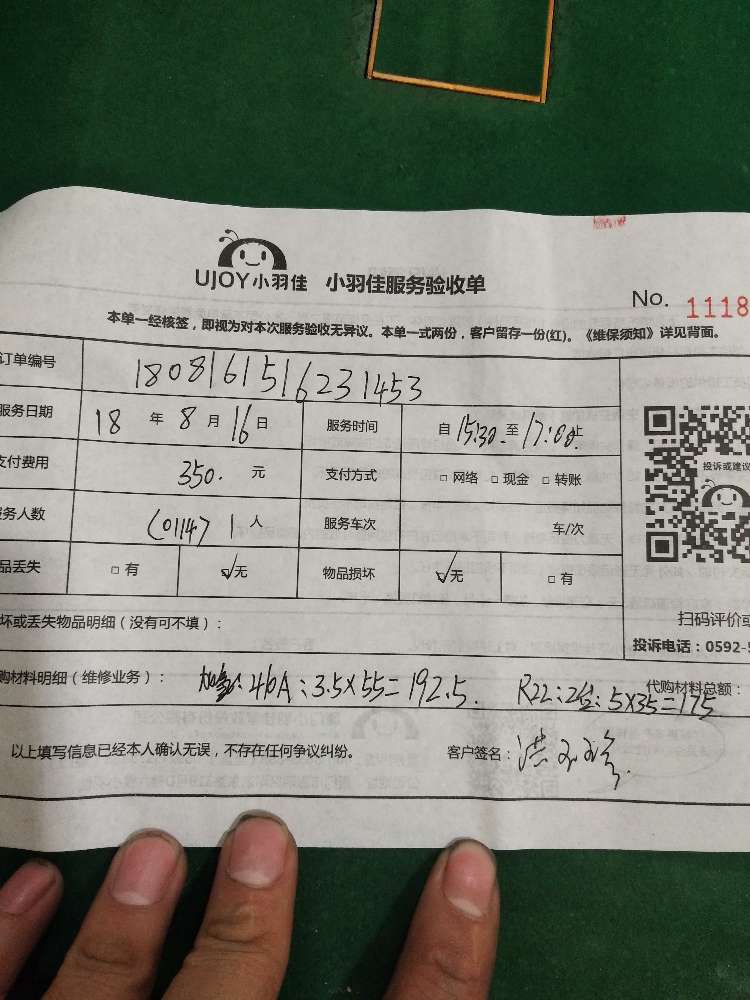 UJOY小羽佳 小羽佳服务验收单
No. 1118
本单一经核签，即视为对本次服务验收无异议。本单一式两份，客户留存一份(红)。《维保须知》详见背面。
订单编号 1808161516231453
服务日期 18 年 8 月 16 日 服务时间 自 15:30 至 17:00 止
支付费用 350. 元 支付方式 □ 网络 □ 现金 □ 转账
务人数 (0114) 1 人 服务车次 车/次
品丢失 □ 有 ☑无 物品损坏 ☑无 □ 有
投诉或建议
坏或丢失物品明细（没有可不填）：
扫码评价或
投诉电话：0592-5
购材料明细（维修业务）： 410A：3.5×55=192.5. R22：2台：5×35=175
代购材料总额：
以上填写信息已经本人确认无误，不存在任何争议纠纷。 客户签名：洪